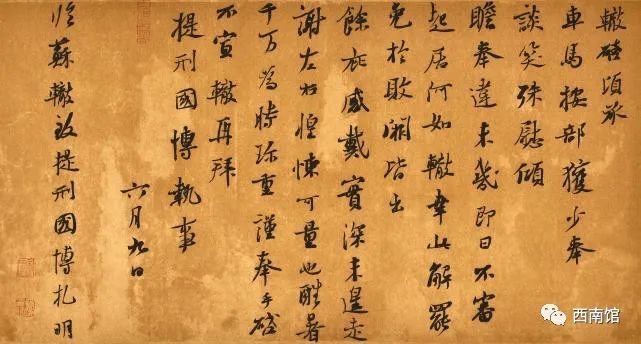 轍啓頃承
車馬按部獲少奉
談笑殊慰傾
瞻奉違未幾即日不審
起居何如轍幸此解罷
免於敗闕皆出
餘庇感戴實深未遑走
謝左右惶悚可量也酷暑
千万為時珍重謹奉手啓
不宣轍再拜
提刑國博執事
六月九日
臨蘇轍致提刑國博札明
西南馆